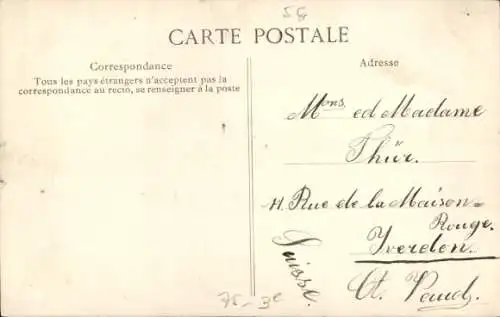 CARTE POSTALE
Correspondance
Tous les pays étrangers n'acceptent pas la
correspondance au recto, se renseigner à la poste
Adresse
Mons. ed Madame
Thür.
11. Rue de la Maison-
Rouge.
Yverdon.
Suisse.
Ct. Vaud.